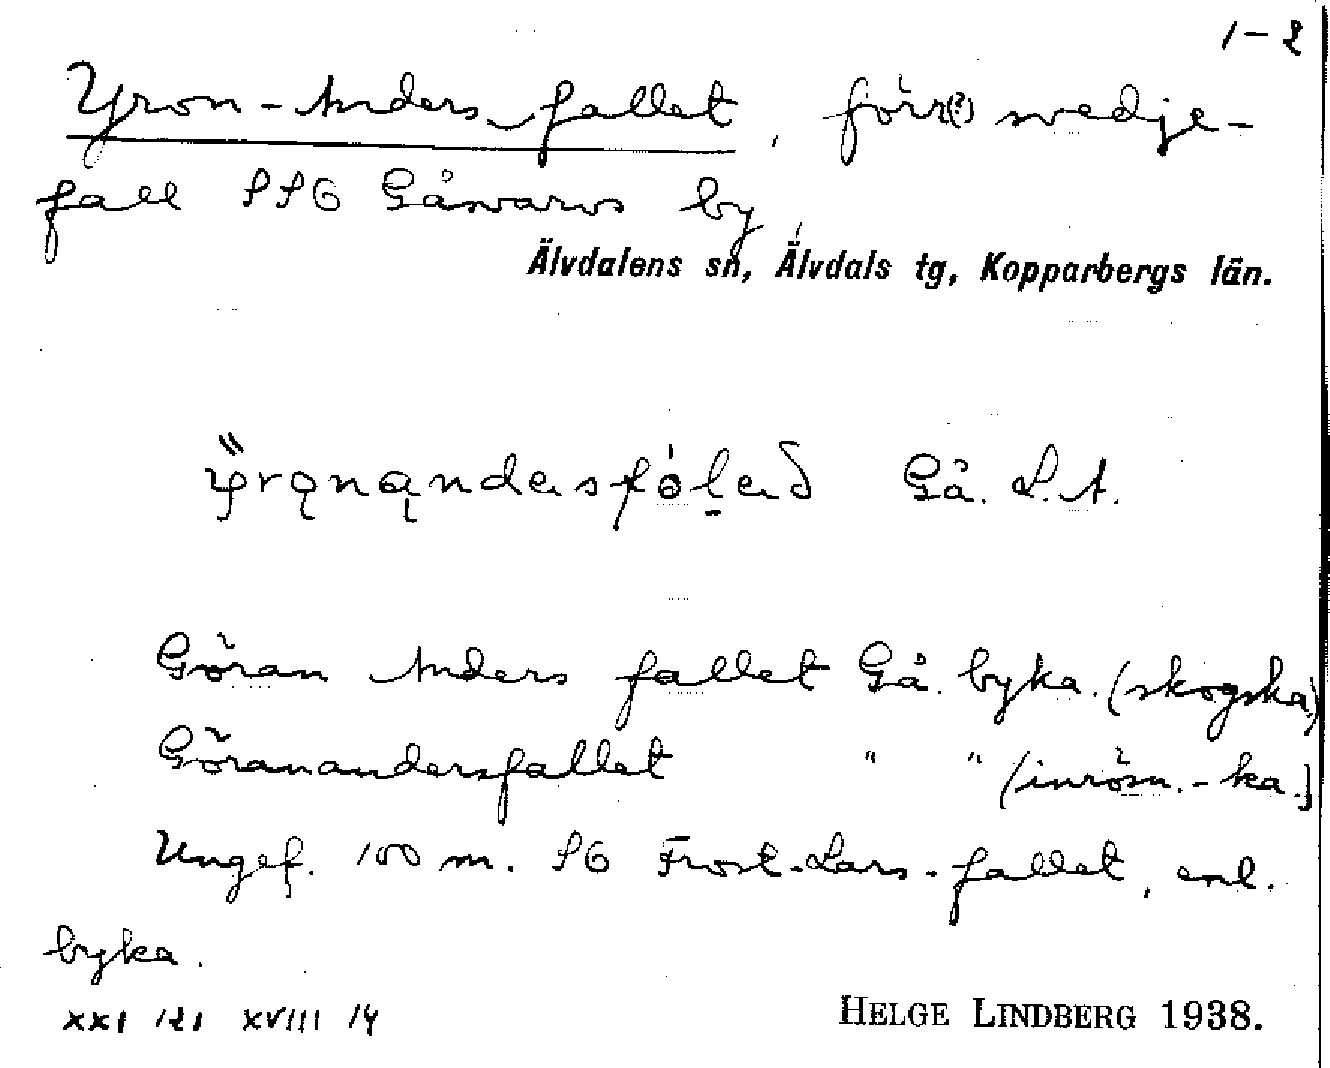 1-2
Yron-Anders-fallet, förr(?) svedje-
fall SSÖ Gåsvarvs by,
Älvdalens sn, Älvdals tg, Kopparbergs län.
Gå. L.A.
Göran Anders fallet Gå. byka. (skogska.)
Göranandersfallet " " (inrösn.-ka.)
Ungef. 100 m. SÖ Frost-Lars-fallet, enl.
byka.
XXI 121 XVIII 14
HELGE LINDBERG 1938.